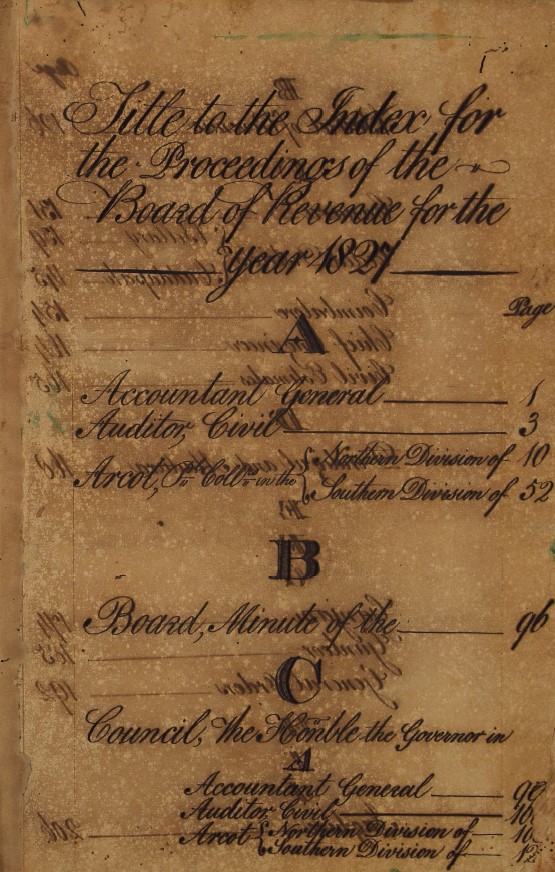 Title to the Index for
the Proceedings of the
Board of Revenue for the
Year 1827
Page
A
Accountant General 1
Auditor, Civil 3
Arcot, in the { Northern Division of 10
Southern Division of 52
B
Board, Minute of the 96
C
Council, the Honble the Governor in
A
Accountant General
Auditor Civil
Arcot { Northern Division of
Southern Division of